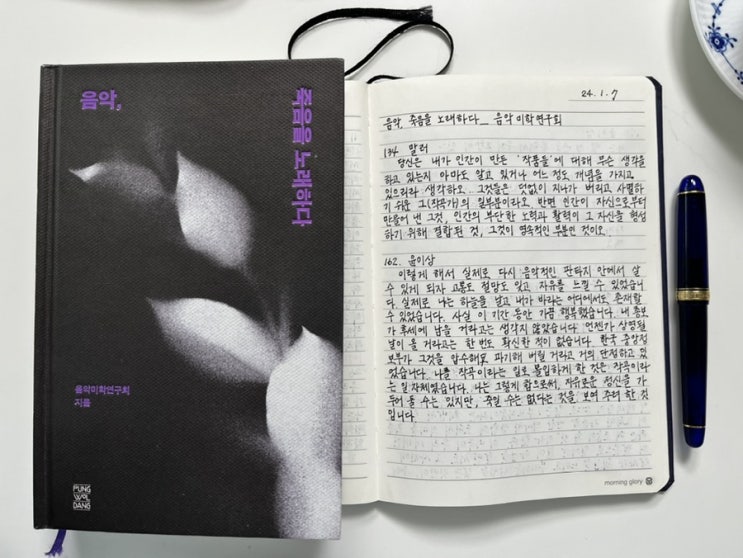 음악,
죽음을 노래하다
음악미학연구회
지음
PUNG
WOL
DANG
24. 1. 7
음악, 죽음을 노래하다_ 음악미학연구회
134 말러
당신은 내가 인간이 만든 '작품들'에 대해 무슨 생각을
하고 있는지 아마도 알고 있거나 어느 정도 개념을 가지고
있으리라 생각하오. 그것들은 덧없이 지나가 버리고 사멸하
기 쉬운 그(작곡가)의 일부분이라오. 반면 인간이 자신으로부터
만들어 낸 그것, 인간의 부단한 노력과 활력이 그 자신을 형성
하기 위해 결합된 것, 그것이 영속적인 부분인 것이오.
162. 윤이상
이렇게 해서 실제로 다시 음악적인 판타지 안에서 살
수 있게 되자 고통도 절망도 잊고 자유를 느낄 수 있었습니
다. 실제로 나는 하늘을 날고 내가 바라는 어디에서도 존재할
수 있었습니다. 사실 이 기간 동안 가끔 행복했습니다. 내 총보
가 후세에 남을 거라고는 생각지 않았습니다. 언젠가 상영될
날이 올 거라고는 한 번도 확신한 적이 없습니다. 한국 중앙정
보부가 그것을 압수해 파기해 버릴 거라고 거의 단정하고 있
었습니다. 나를 작곡이라는 일로 몰입하게 한 것은 작곡이라
는 일 자체였습니다. 나는 그렇게 함으로써, 자유로운 정신을 가
두어 둘 수는 있지만, 죽일 수는 없다는 것을 보여 주려 한 것
입니다.
morning glory